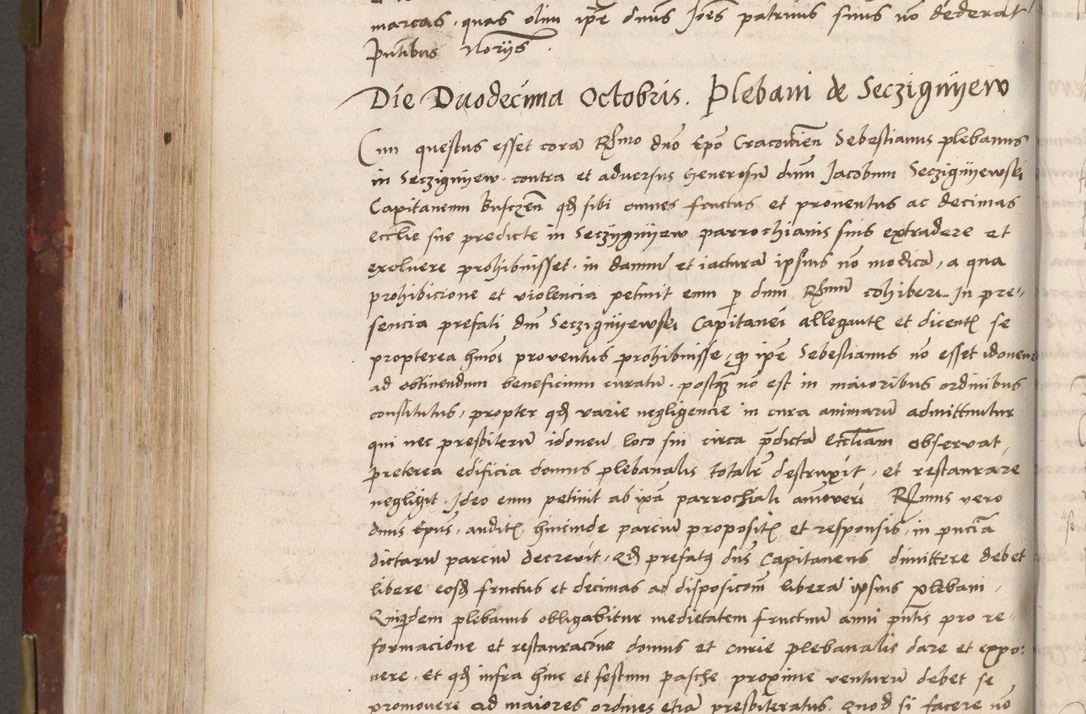 marcas, quas olim ipe dnus Joes patruus suus no dederat
pntibus Norijs.
Die Duodecima Octobris. Plebani de Seczignijew
Cum questus esset cora Rmo dno Epo Cracovien Sebestianus plebanus
in Seczignijew. contra et adversus generosu dnm Jacobum Secziguijewski
Capitaneum Buscen qd sibi omnes fructus et proventus ac decimas
ecclie sue predicte in Seczijgnijew parrochianis suis extradere et
exoluere prohibuisset. in damnu et iactura ipsius no modica, a qua
prohibicione et violencia petiuit eum p dnm Rmum cohiberi. In pre-
sencia prefati dni Secziguijewski Capitanei allegantis et dicentis se
propterea hmoi proventus prohibuisse, qz ipe Sebestianus no esset idoneus
ad obtinendum beneficium curatu. postqz no est in maioribus ordinibus
constitutus, propter qd varie negligencie in cura animaru admittuntur
qui nec presbiteru idoneu loco sui circa pdicta Eccliam observat,
preterea edificia domus plebanalis totalr destruxit, et restaurare
negligit. Ideo eum petiuit ab ipa parrochiali amoveri Rmus vero
dnus Epus, auditis hincinde parciu propositis et responsis, in pncia
dictaru parciu decrevit, Qd prefatus dns Capitaneus dimittere debet
libere eosdem fructus et decimas ad disposicom libera ipsius plebani,
Quiquidem plebanus obligabitur medietatem fructuum anni pntis pro re-
formacione et restauracone domus et curie plebanalis dare et expo-
nere, et qd infra hinc et festum pasche proxime venturu debet se
promovere ad maiores ordines etia presbiteratus. Quod si facere no